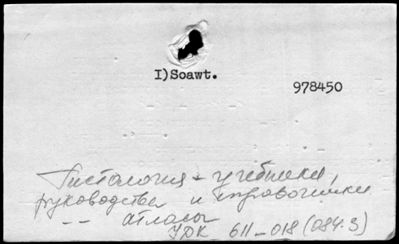 I)Soawt.
978450
Гистология - учебники,
руководства и справочники
-- атласы
УДК 611-018(084.3)